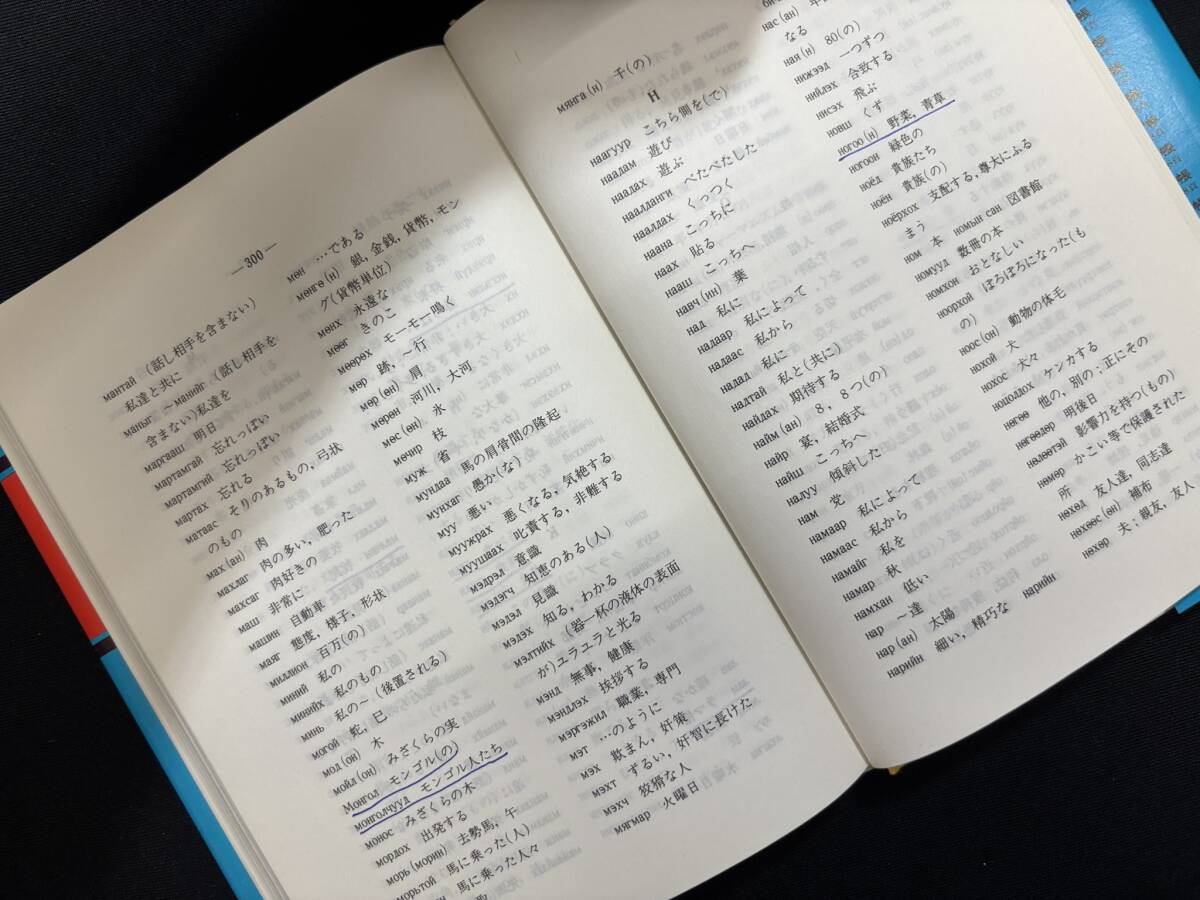 —300—
мантай (話し相手を含まない)
私達と共に
маныг ～манийг (話し相手を
含まない)私達を
маргааш 明日
мартамгай 忘れっぽい
мартамгий 忘れっぽい
мартах 忘れる
матаас そりのあるもの, 弓状
のもの
мах (ан) 肉
махлаг 肉の多い, 肥った
махсаг 肉好きの
маш 非常に
машин 自動車
маяг 態度, 様子, 形状
миллион 百万(の)
миний 私の
минийх 私のもの
минь 私の～ (後置される)
могой 蛇, 巳
мод (он) 木
мойл (он) みざくらの実
Монгол モンゴル(の)
монголчууд モンゴル人たち
монос みざくらの木
мордох 出発する
морь (морин) 去勢馬, 午
морьтой 馬に乗った(人)
馬に乗った人々
мөн …である
мөнгө (н) 銀, 金銭, 貨幣, モン
グ(貨幣単位)
мөнх 永遠な
мөөг きのこ
мөөрөх モーモー鳴く
мөр 跡, ～行
мөр (өн) 肩
мөрөн 河川, 大河
мөс (өн) 氷
мөчир 枝
муж 省
мундаа 馬の肩骨間の隆起
мунхаг 愚か(な)
муу 悪い
муужрах 悪くなる, 気絶する
муушаах 叱責する, 非難する
мэдрэл 意識
мэдэгч 知恵のある(人)
мэдэл 見識
мэдэх 知る, わかる
мэлтийх (器一杯の液体の表面
が)ユラユラと光る
мэнд 無事, 健康
мэндлэх 挨拶する
мэргэжил 職業, 専門
мэт …のように
мэх 欺まん, 奸策
мэхт ずるい, 奸智に長けた
мэхч 狡猾な人
мягмар 火曜日
мянга (н) 千(の)
Н
наагуур こちら側を(で)
наадам 遊び
наадах 遊ぶ
наалданги べたべたした
наалдах くっつく
наана こっちに
наах 貼る
нааш こっちへ
навч (ин) 葉
над 私に
надаар 私によって
надаас 私から
надад 私に
надтай 私と(共に)
найдах 期待する
найм (ан) 8, 8つ(の)
найр 宴, 結婚式
найш こっちへ
налуу 傾斜した
нам 党
намаар 私によって
намаас 私から
намайг 私を
намар 秋
намхан 低い
нар ～達
нар (ан) 太陽
нарийн 細い, 精巧な нарийн
нас (ан)
なる
ная (н) 80(の)
нижээд 一つずつ
нийлэх 合致する
нисэх 飛ぶ
новш くず
ногоо (н) 野菜, 青草
ногоон 緑色の
ноёд 貴族たち
ноён 貴族(の)
ноёрхох 支配する, 尊大にふる
まう
ном 本 номын сан 図書館
номууд 数冊の本
номхон おとなしい
ноорхой ぼろぼろになった(も
の)
ноос (он) 動物の体毛
нохой 犬
нохос 犬々
ноцолдох ケンカする
нөгөө 他の, 別の; 正にその
нөгөөдөр 明後日
нөлөөтэй 影響力を持つ(もの)
нөмөр かこい等で保護された
所
нөхөд 友人達, 同志達
нөхөөс (өн) 補布
нөхөр 夫; 親友, 友人